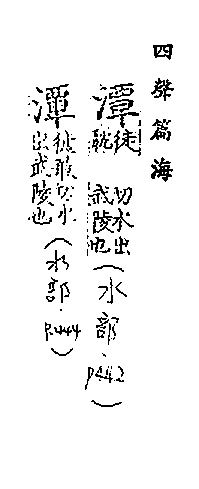 四聲篇海
潭徒耽切水出武陵也(水部.p.442)
潭徒敢切水出武陵也(水部.p.444)